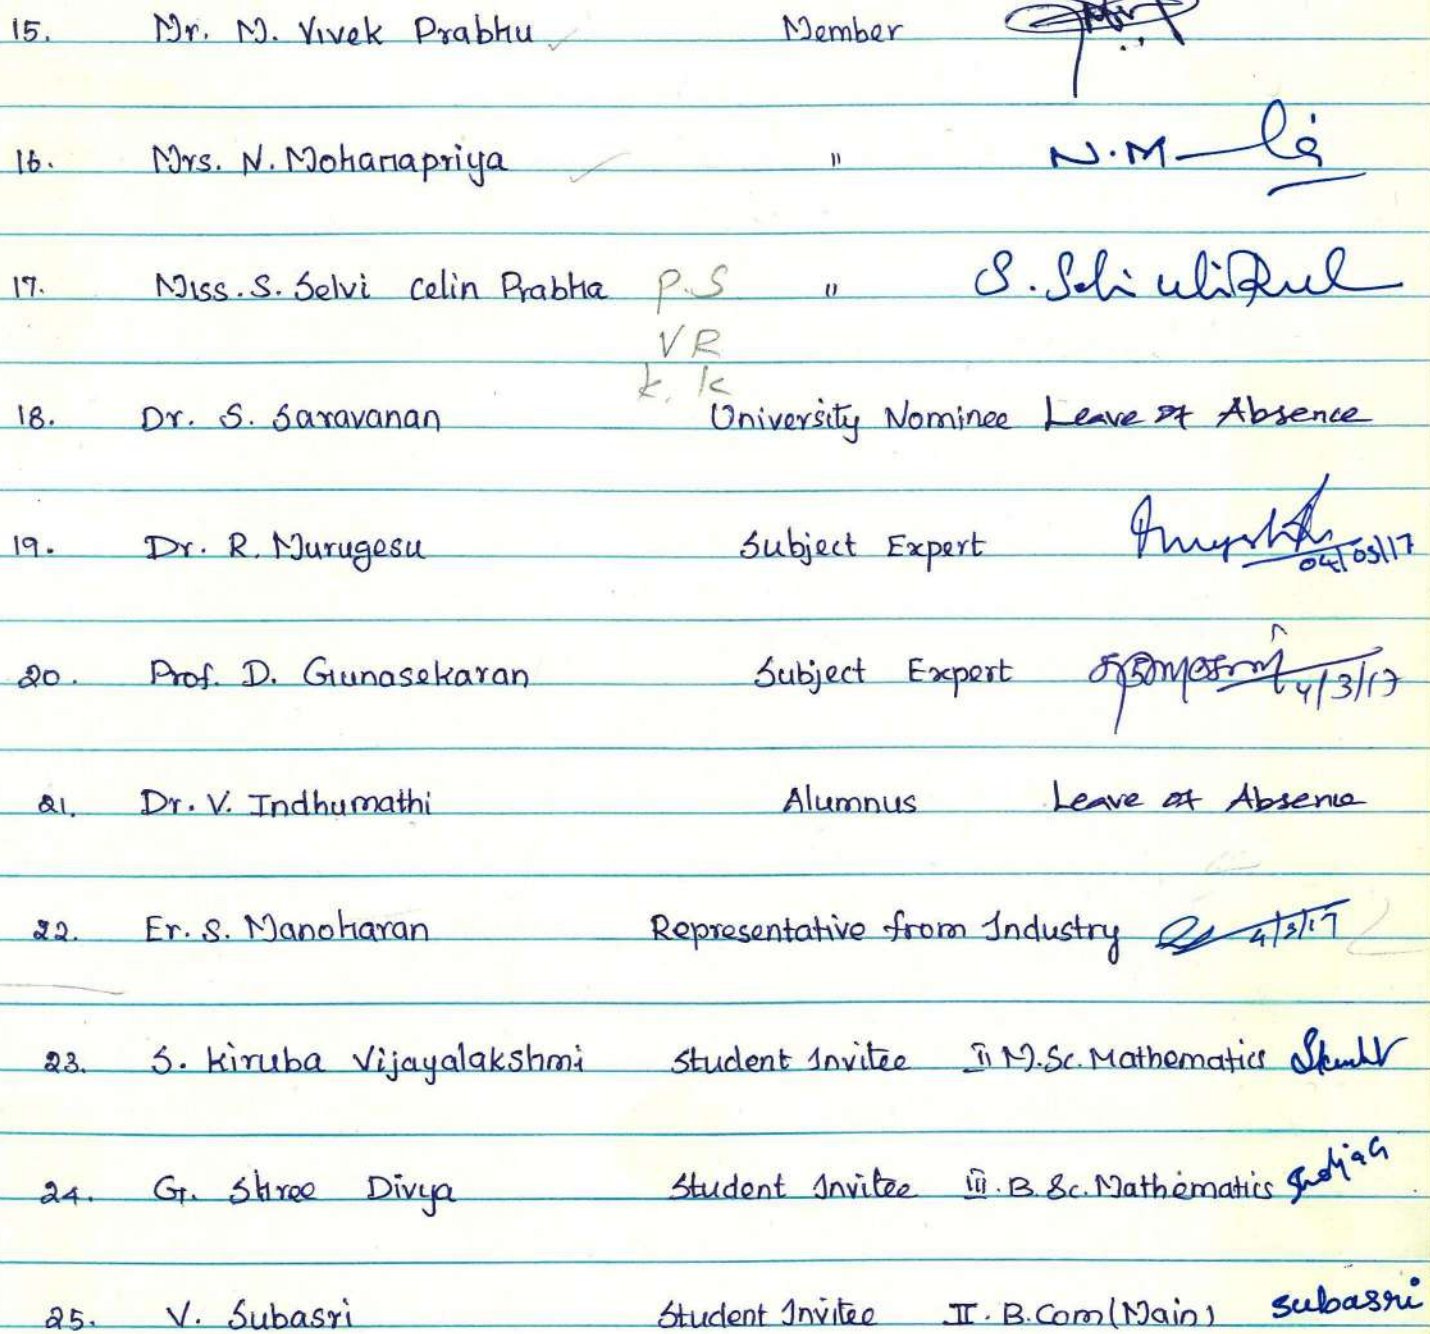 15. Mr. M. Vivek Prabhu Member
16. Mrs. N. Mohanapriya " N.M
17. Miss. S. Selvi Celin Prabha P.S "
VR
k. k
18. Dr. S. Saravanan University Nominee Leave of Absence
19. Dr. R. Murugesu Subject Expert 04/03/17
20. Prof. D. Gunasekaran Subject Expert 4/3/17
21. Dr. V. Indhumathi Alumnus Leave of Absence
22. Er. S. Manoharan Representative from Industry 4/3/17
23. S. Kiruba Vijayalakshmi Student Invitee II M.Sc. Mathematics
24. G. Shree Divya Student Invitee III. B.Sc. Mathematics
25. V. Subasri Student Invitee II. B.Com (Main) Subasri